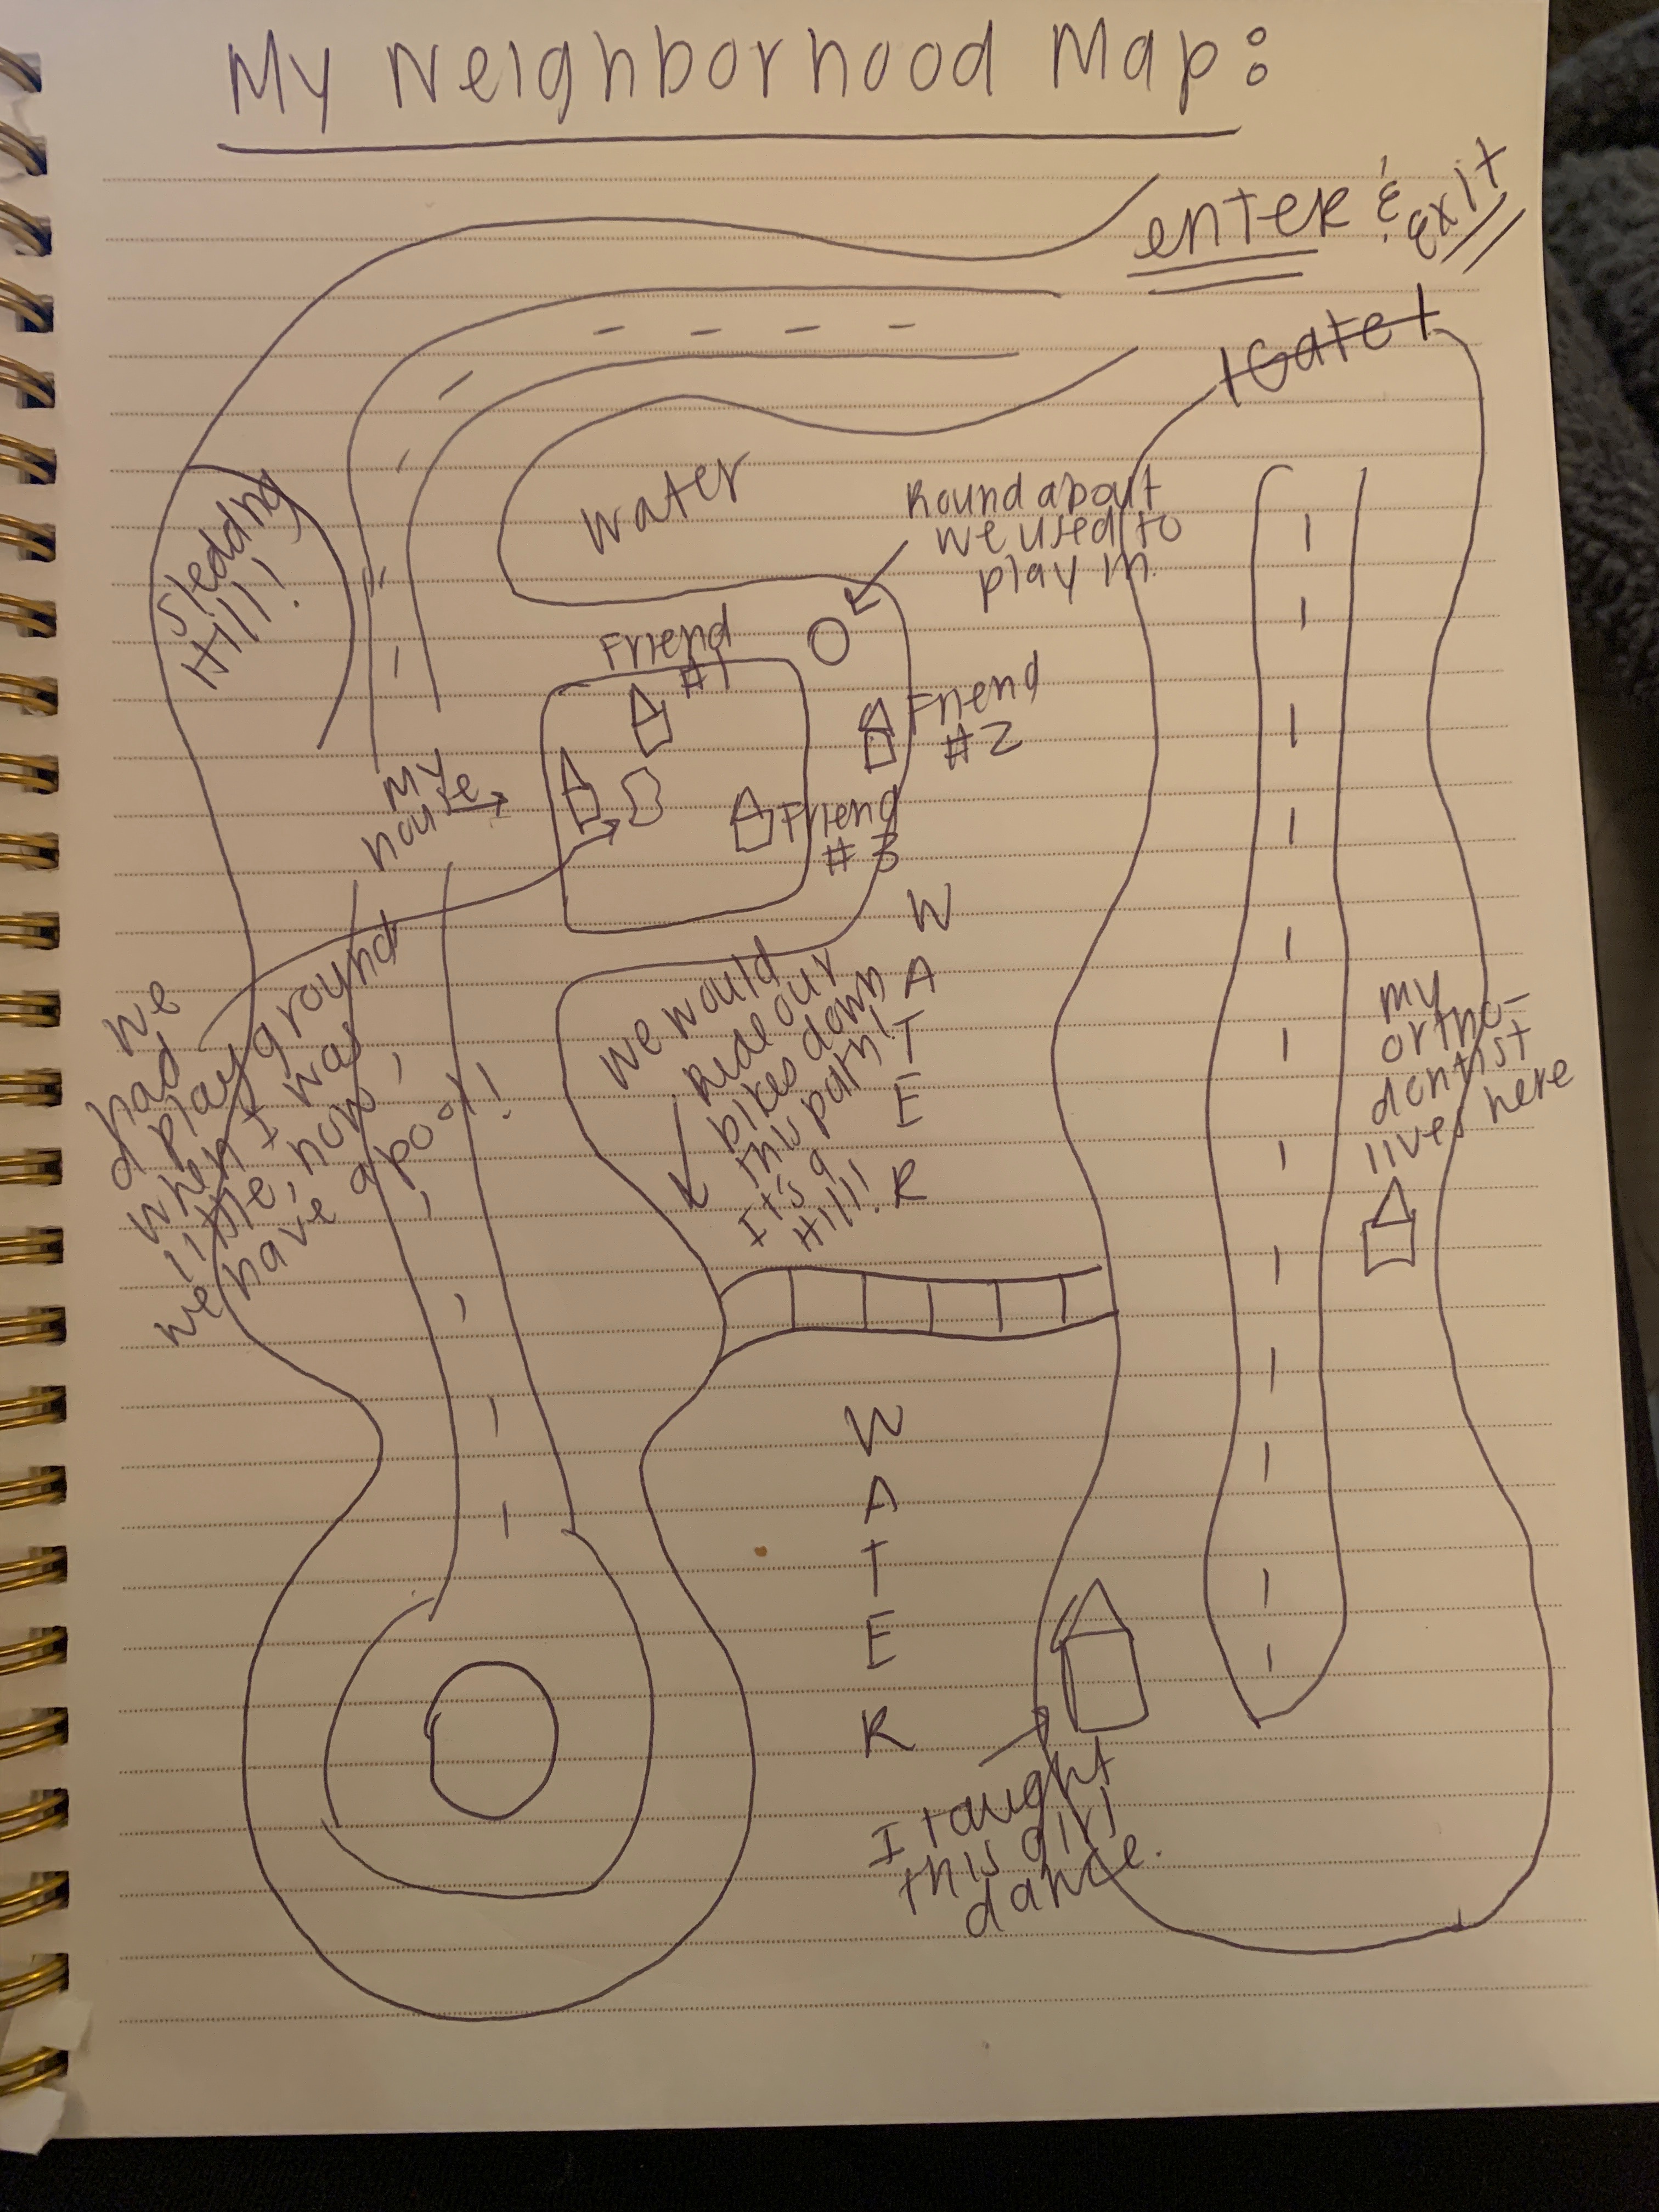 My Neighborhood Map:
enter & exit
Gate
Sledding
Hill!
water
Roundabout
we used to
play in.
Friend
#1
Friend
#2
My
house
Friend
#3
we
had
a playground
when I was
little, now,
we have a pool!
we would
ride our
bikes down
this path!
It's a
Hill!
W
A
T
E
R
my
ortho-
dontist
lives here
W
A
T
E
R
I taught
this girl
dance.